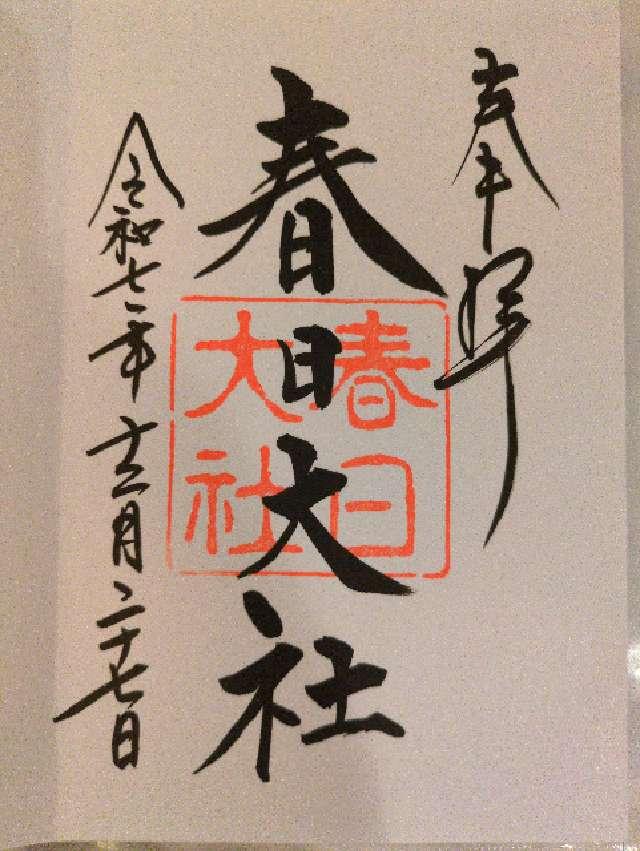 奉拝
春日大社
春日
大社
令和七年十二月二十七日